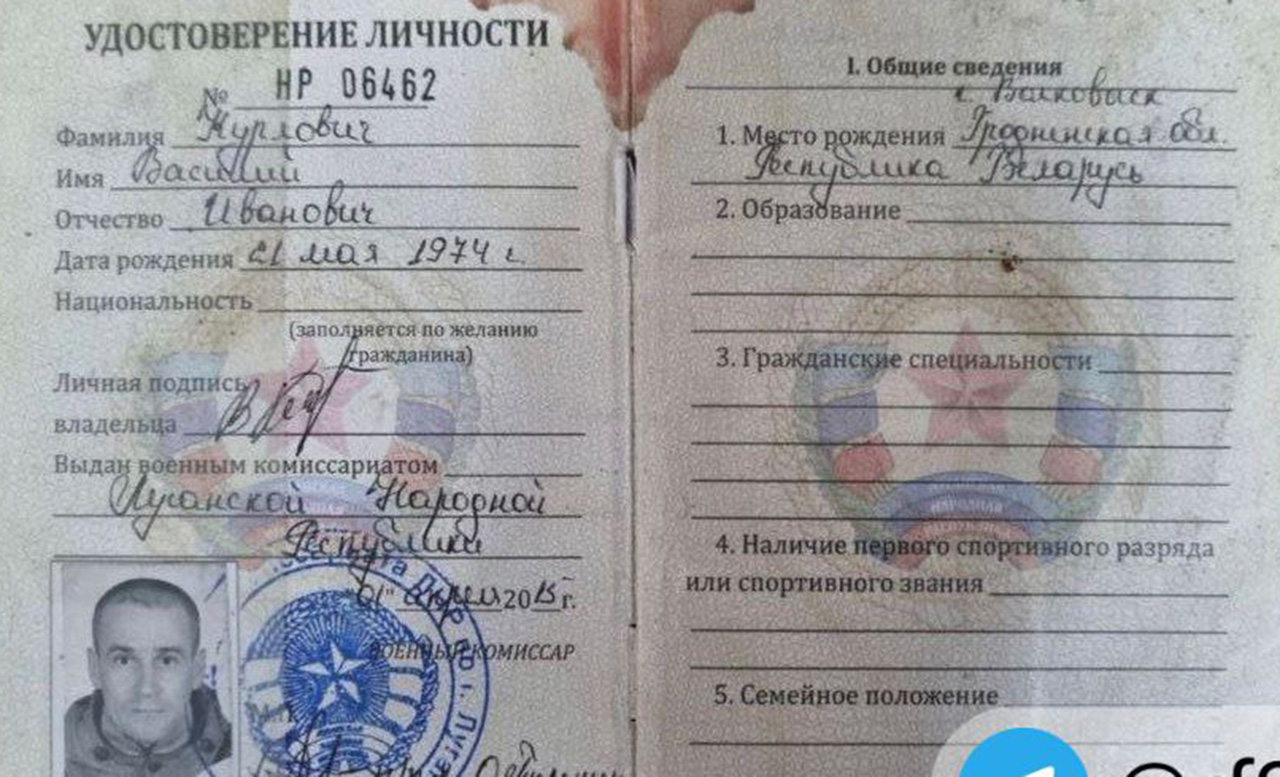 УДОСТОВЕРЕНИЕ ЛИЧНОСТИ
№ НР 06462
Фамилия Курлович
Имя Василий
Отчество Иванович
Дата рождения 21 мая 1974 г.
Национальность
(заполняется по желанию
гражданина)
Личная подпись
владельца
Выдан военным комиссариатом
Луганской Народной
Республики
"01" апреля 2015 г.
ВОЕННЫЙ КОМИССАР
I. Общие сведения
г. Волковыск
1. Место рождения Гродненская обл.
Республика Беларусь
2. Образование
3. Гражданские специальности
4. Наличие первого спортивного разряда
или спортивного звания
5. Семейное положение